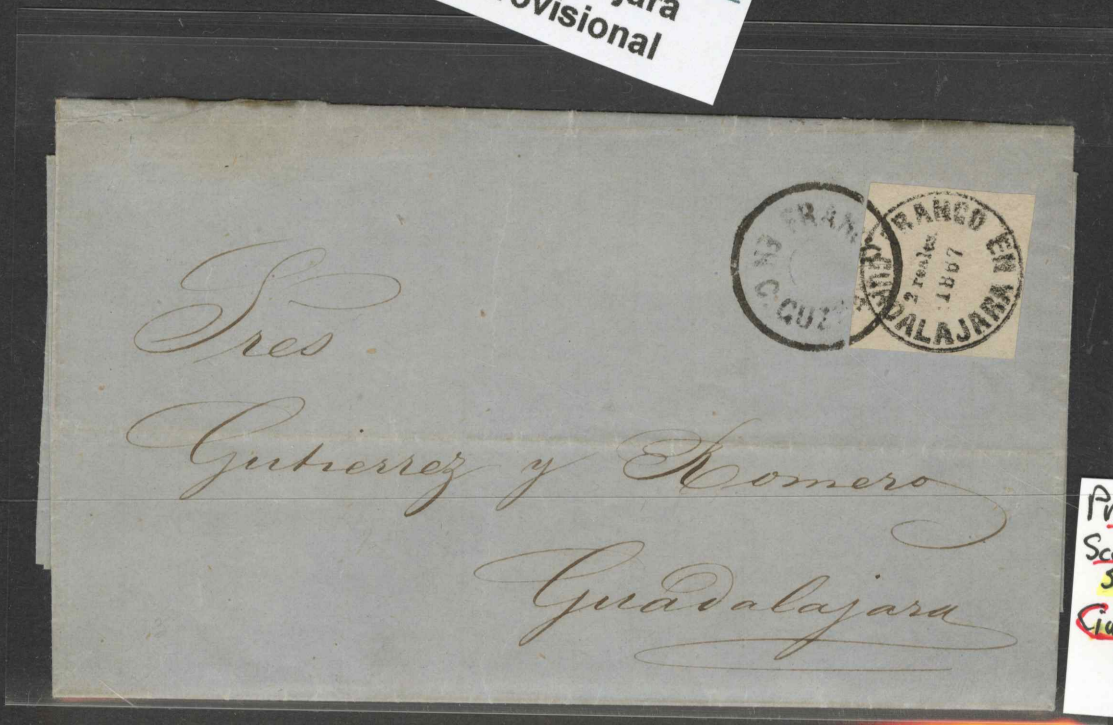 jara
rovisional
FRAN EN
C. GUZ
FRANCO EN
GUADALAJARA
2 reales.
1867
Sres
Gutierrez y Romero
Guadalajara